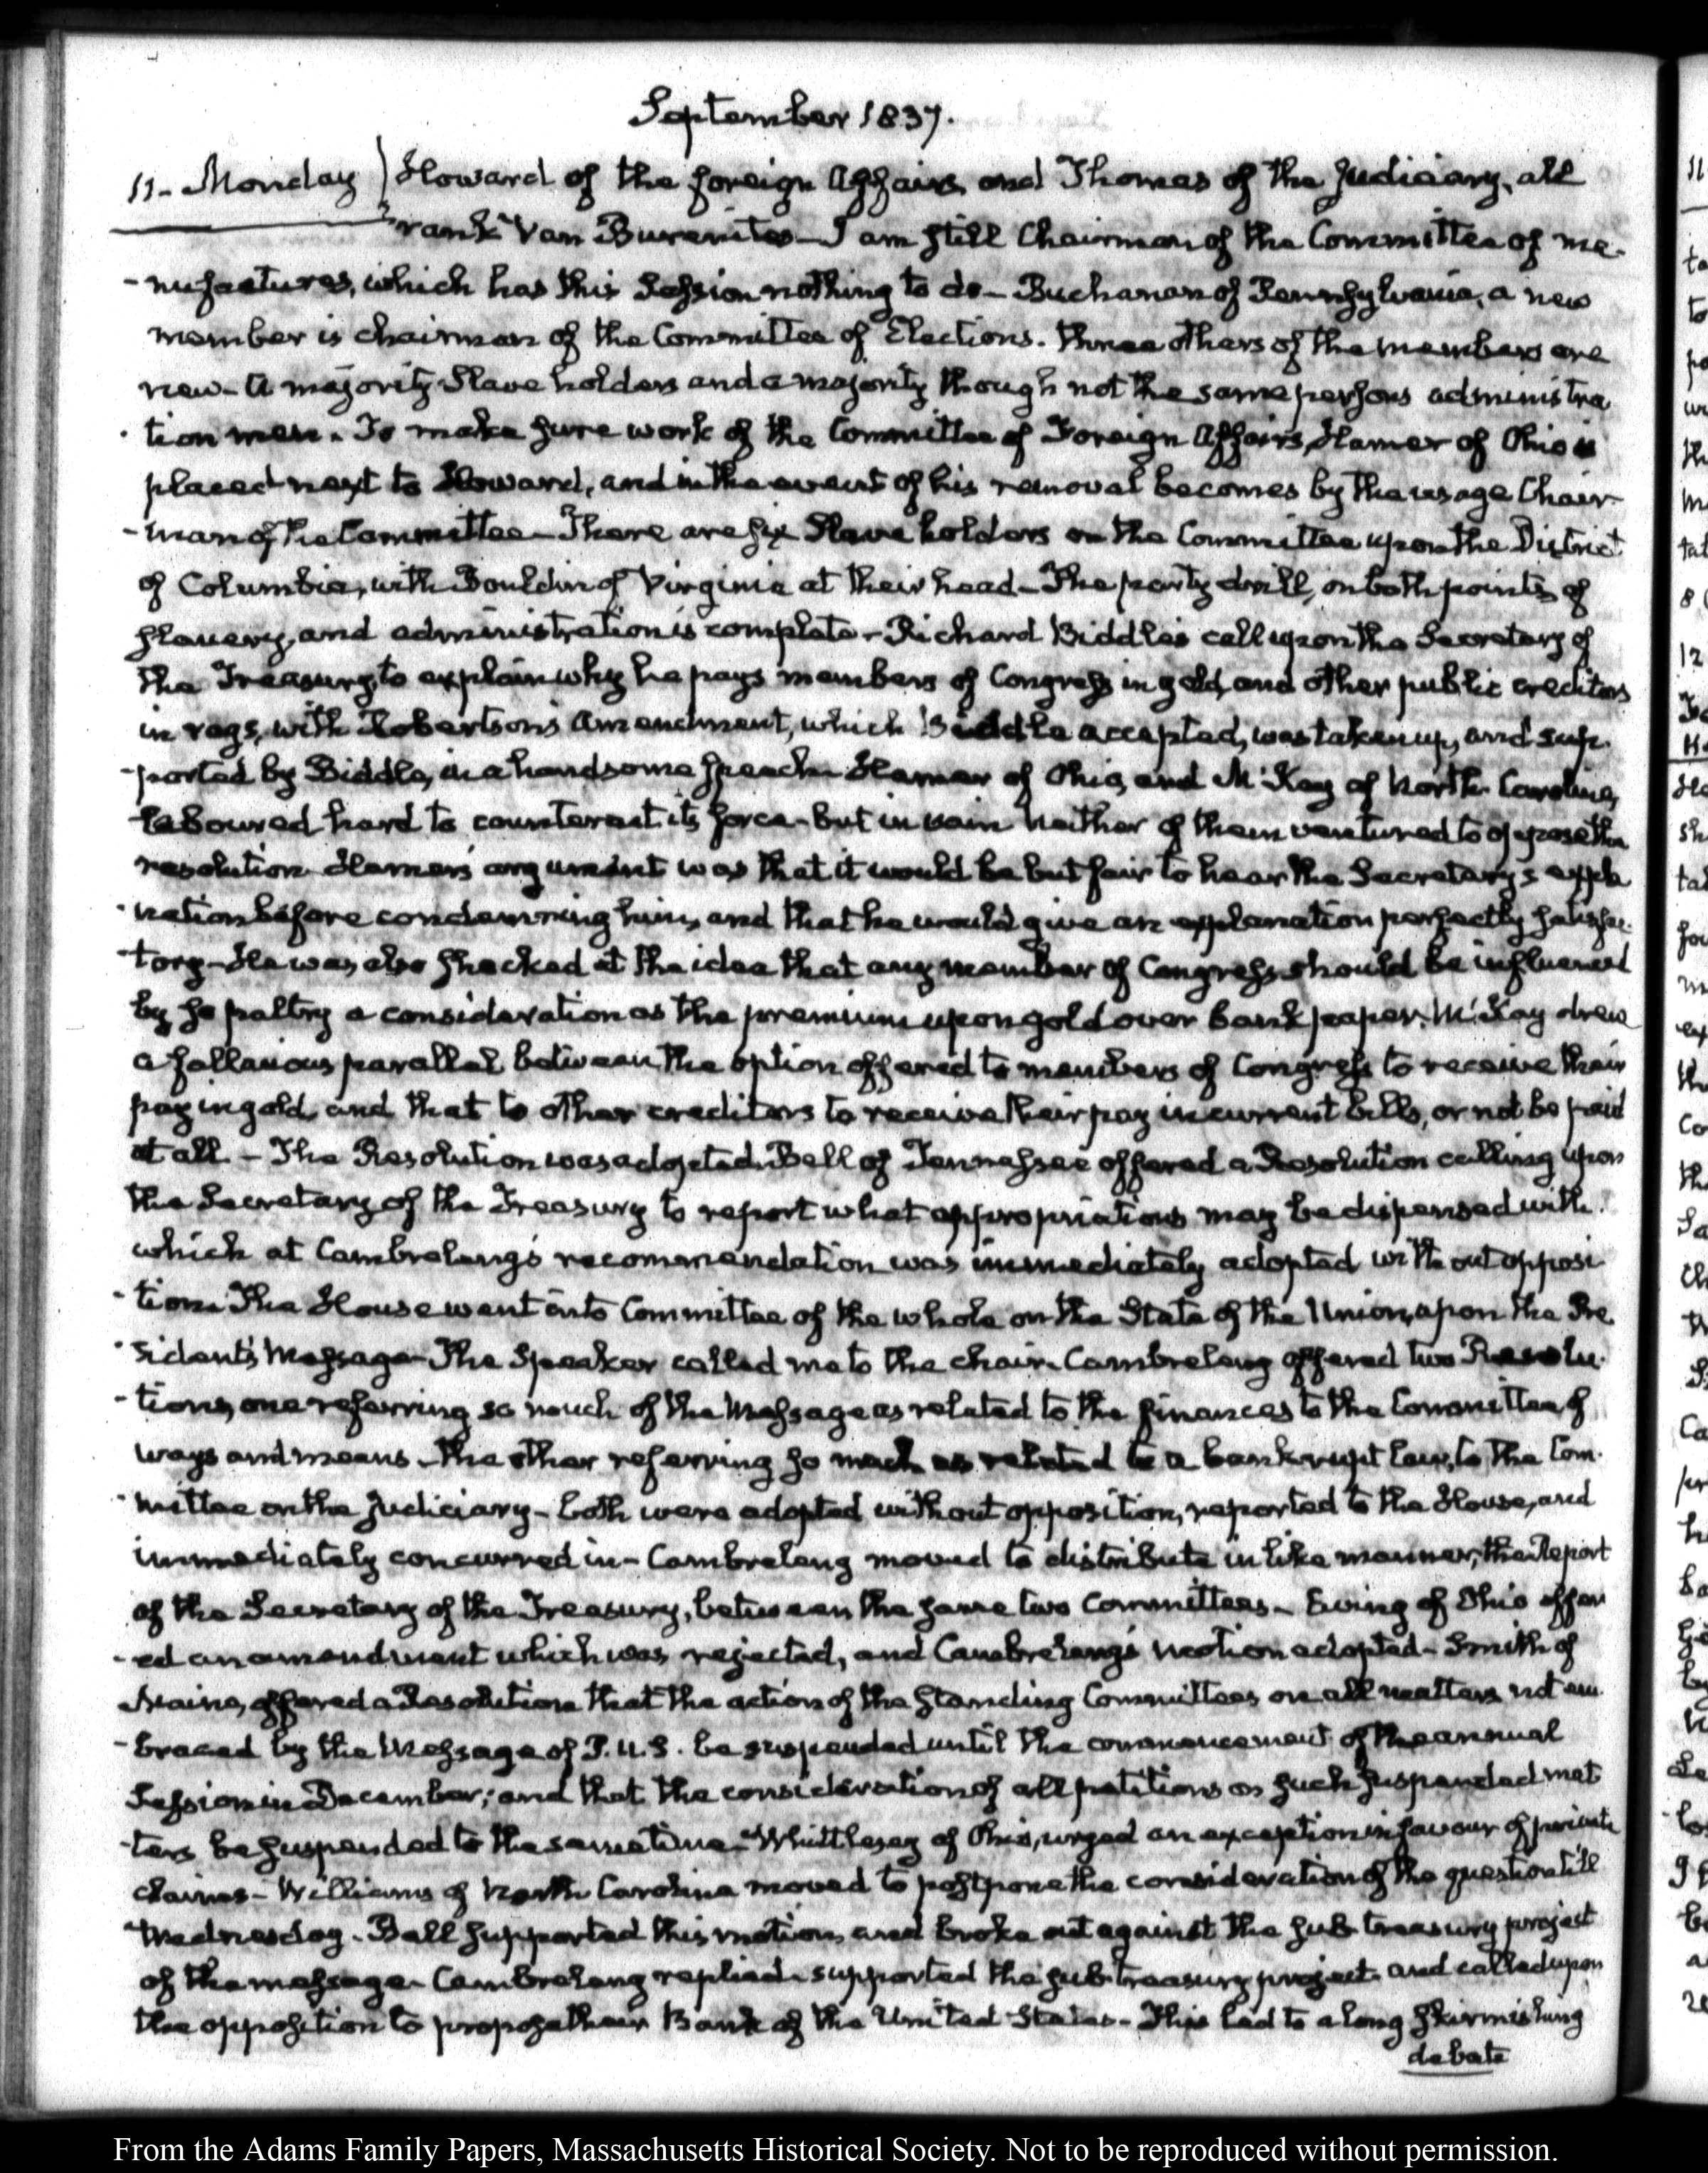 September 1837.
11. Monday) Howard of the foreign Affairs, and Thomas of the Judiciary, all
rank Van Burenites—I am still Chairman of the Committee of ma-
-nufactures, which has this Session nothing to do—Buchanan of Pennsylvania, a new
member is chairman of the Committee of Elections. three others of the members are
new—A majority Slave holders and a majority though not the same persons administra
-tion men. To make sure work of the Committee of Foreign Affairs, Hamer of Ohio is
placed next to Howard, and in the event of his removal becomes by the usage Chair-
-man of the Committee—There are six Slave holders on the Committee upon the District
of Columbia, with Bouldin of Virginia at their head—The party drill, on both points of
slavery, and administration is complete—Richard Biddle's call upon the Secretary of
the Treasury, to explain why he pays members of Congress in gold, and other public creditors
in rags, with Robertson's Amendment, which Biddle accepted, was taken up, and sup-
-ported by Biddle, in a handsome speech—Hamer of Ohio, and McKay of North Carolina,
laboured hard to counteract its force—but in vain. Neither of them ventured to oppose the
resolution. Hamer's argument was that it would be but fair to hear the Secretary's expla
-nation before condemning him, and that he would give an explanation perfectly satisfac-
-tory—He was also shocked at the idea that any member of Congress should be influenced
by so paltry a consideration as the premium upon gold over bank paper. McKay drew
a fallacious parallel between the option offered to members of Congress to receive their
pay in gold, and that to other creditors to receive their pay in current bills, or not be paid
at all—The Resolution was adopted. Bell of Tennessee offered a Resolution calling upon
the Secretary of the Treasury to report what appropriations may be dispensed with.
which at Cambreleng's recommendation was immediately adopted without opposi-
-tion. The House went into Committee of the whole on the State of the Union, upon the Pre
-sident's Message—The Speaker called me to the chair. Cambreleng offered two Resolu-
-tions, one referring so much of the Message as related to the finances to the Committee of
ways and means—the other referring so much as related to a bankrupt law, to the Com-
-mittee on the Judiciary—both were adopted without opposition, reported to the House, and
immediately concurred in—Cambreleng moved to distribute in like manner, the Report
of the Secretary of the Treasury, between the same two Committees—Ewing of Ohio offer
-ed an amendment which was rejected, and Cambreleng's motion adopted—Smith of
Maine, offered a Resolution that the action of the Standing Committees on all matters not em-
-braced by the Message of P.U.S. be suspended until the commencement of the annual
Session in December; and that the consideration of all petitions on such suspended mat
-ters be suspended to the same time—Whittlesey of Ohio, urged an exception in favour of private
claims—Williams of North Carolina moved to postpone the consideration of the question till
Wednesday. Bell supported this motion, and broke out against the sub-treasury project
of the message. Cambreleng replied—supported the sub-treasury project, and called upon
the opposition to propose their Bank of the United States—This led to a long skirmishing
debate
From the Adams Family Papers, Massachusetts Historical Society. Not to be reproduced without permission.